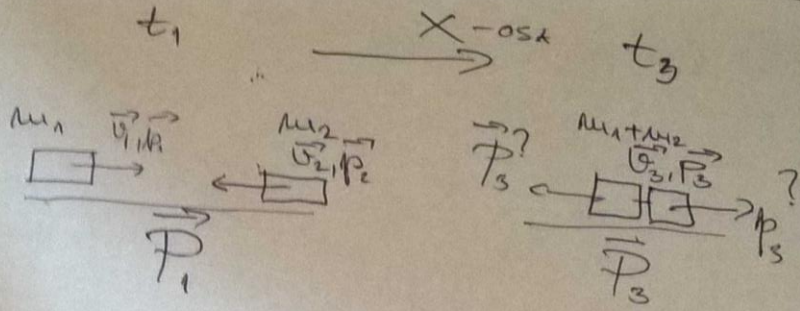 t₁
X-osa
t₃
m₁
v⃗₁, p⃗₁
m₂
v⃗₂, p⃗₂
P⃗₁
P⃗₃?
m₁+m₂
v⃗₃, P⃗₃
?
p₃
P⃗₃